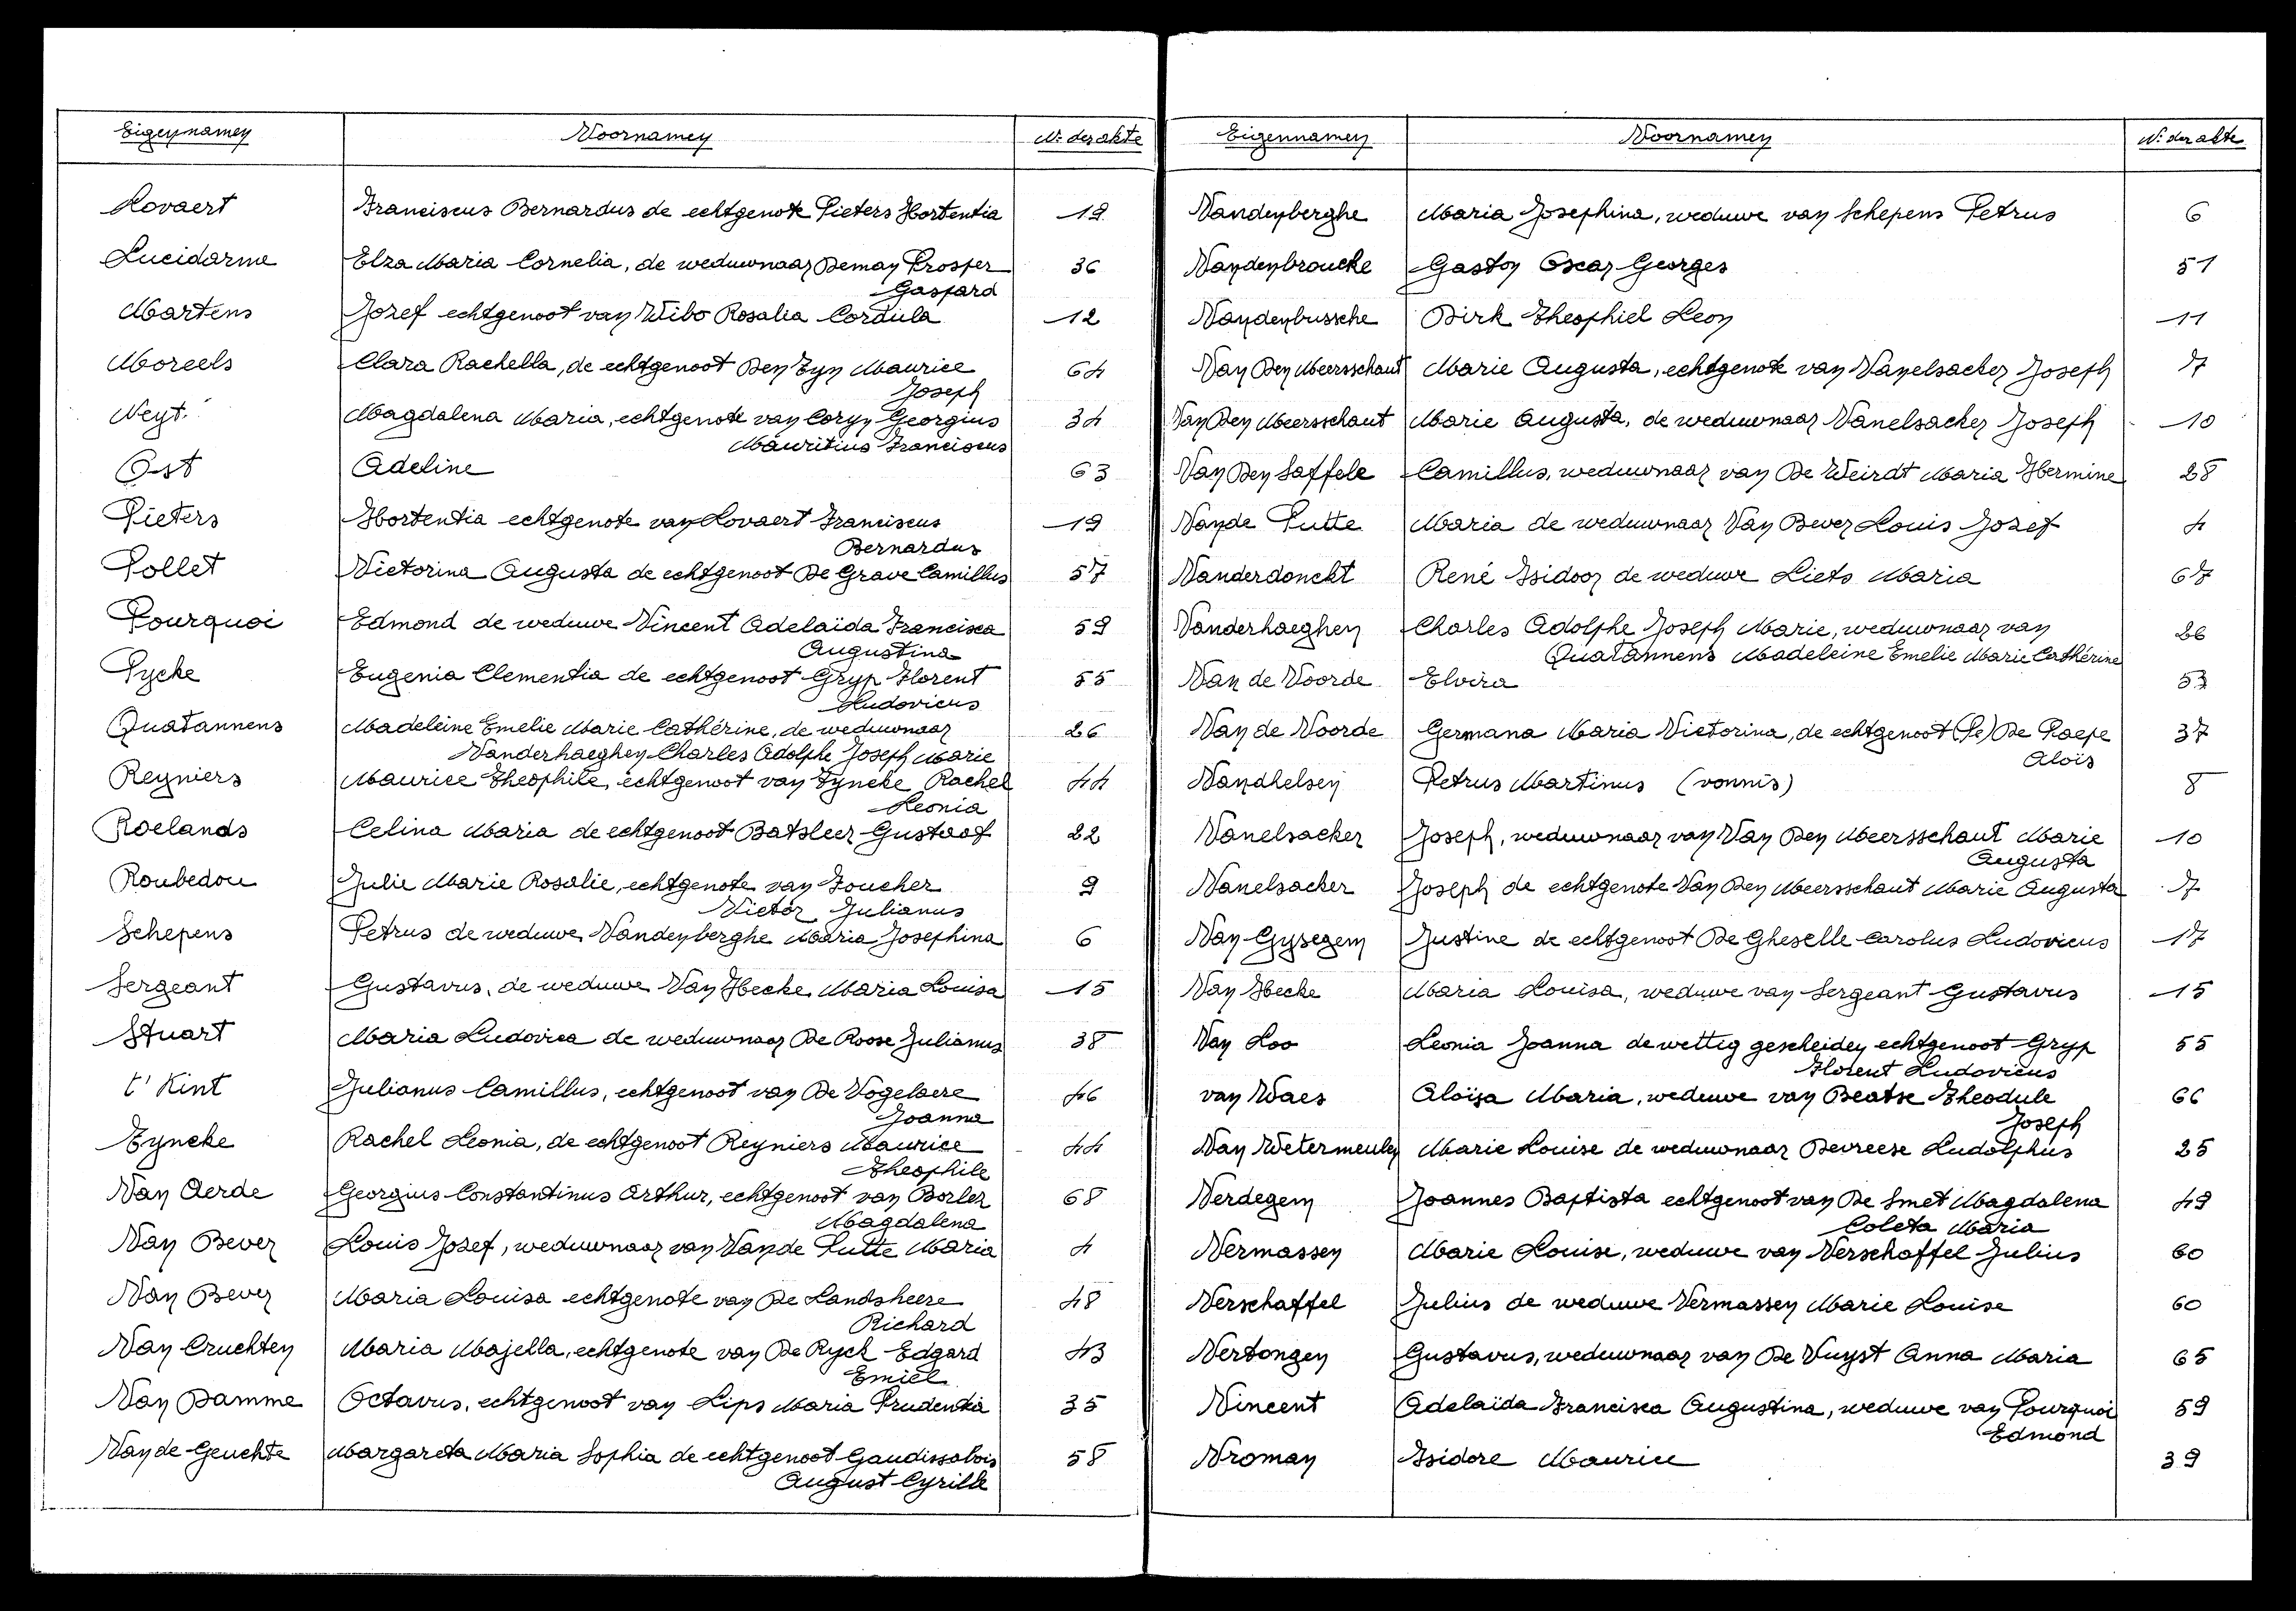 Eigennamen Voornamen Nr der akte
Lovaert Franciscus Bernardus de echtgenote Pieters Hortentia 19
Lucidarme Elza Maria Cornelia, de weduwnaar Deman Prosper 36
Gaspard
Martens Jozef echtgenoot van Wibo Rosalia Cordula 12
Moreels Clara Rachella, de echtgenoot Den Tyn Maurice 64
Joseph
Neyt Magdalena Maria, echtgenote van Coryn Georgius 34
Mauritius Franciscus
Ost Adeline 63
Pieters Hortentia echtgenote van Lovaert Franciscus 19
Bernardus
Pollet Victorina Augusta de echtgenoot De Grave Camillus 57
Pourquoi Edmond de weduwe Vincent Adelaïda Francisca 59
Augustina
Pycke Eugenia Clementia de echtgenoot Gryp Florent 55
Ludovicus
Quatannens Madeleine Emelie Marie Cathérine, de weduwnaar 26
Vanderhaeghen Charles Adolphe Joseph Marie
Reyniers Maurice Theophile, echtgenoot van Tyncke Rachel 44
Leonia
Roelands Celina Maria de echtgenoot Batsleer Gustaaf 22
Roubedou Julie Marie Rosalie, echtgenote van Foucher 9
Victor Julianus
Schepens Petrus de weduwe Vandenberghe Maria Josephina 6
Sergeant Gustavus, de weduwe Van Hecke Maria Louisa 15
Stuart Maria Ludovica de weduwnaar De Roose Julianus 38
t' Kint Julianus Camillus, echtgenoot van De Vogelaere 46
Joanna
Tyncke Rachel Leonia, de echtgenoot Reyniers Maurice 44
Theophile
Van Aerde Georgius Constantinus Arthur, echtgenoot van Borler 68
Magdalena
Van Bever Louis Jozef, weduwnaar van Van de Putte Maria 4
Van Bever Maria Louisa echtgenote van De Landsheere 48
Richard
Van Cruchten Maria Majella, echtgenote van De Ryck Edgard 43
Emiel
Van Damme Octavus, echtgenoot van Lips Maria Prudentia 35
Van de Geuchte Margareta Maria Sophia de echtgenoot Gaudissabois 58
August Cyrille
Eigennamen Voornamen Nr der akte
Vandenberghe Maria Josephina, weduwe van Schepens Petrus 6
Vandenbroucke Gaston Oscar Georges 51
Vandenbussche Dirk Theophiel Leon 11
Van Den Meersschaut Marie Augusta, echtgenote van Vanelsacker Joseph 7
Van Den Meersschaut Marie Augusta, de weduwnaar Vanelsacker Joseph 10
Van Den Saffele Camillus, weduwnaar van De Weirdt Maria Hermine 28
Van de Putte Maria de weduwnaar Van Bever Louis Jozef 4
Vanderdonckt René Isidoor de weduwe Liets Maria 67
Vanderhaeghen Charles Adolphe Joseph Marie, weduwnaar van 26
Quatannens Madeleine Emelie Marie Cathérine
Van de Voorde Elvira 53
Van de Voorde Germana Maria Victorina, de echtgenoot (Pe) De Paepe 37
Alois
Vandhelsen Petrus Martinus (vonnis) 8
Vanelsacker Joseph, weduwnaar van Van Den Meersschaut Marie 10
Augusta
Vanelsacker Joseph de echtgenote Van Den Meersschaut Marie Augusta 7
Van Gysegem Justine de echtgenoot De Gheselle Carolus Ludovicus 17
Van Hecke Maria Louisa, weduwe van Sergeant Gustavus 15
Van Loo Leonia Joanna de wettig gescheiden echtgenoot Gryp 55
Florent Ludovicus
van Waes Aloïsa Maria, weduwe van Beatse Theodule 66
Joseph
Van Wetermeulen Marie Louise de weduwnaar Devreese Ludolphus 25
Verdegem Joannes Baptista echtgenoot van De Smet Magdalena 49
Coleta Maria
Vermassen Marie Louise, weduwe van Verschaffel Julius 60
Verschaffel Julius de weduwe Vermassen Marie Louise 60
Vertongen Gustavus, weduwnaar van De Vuyst Anna Maria 65
Vincent Adelaïda Francisca Augustina, weduwe van Pourquoi 59
Edmond
Vroman Isidore Maurice 39